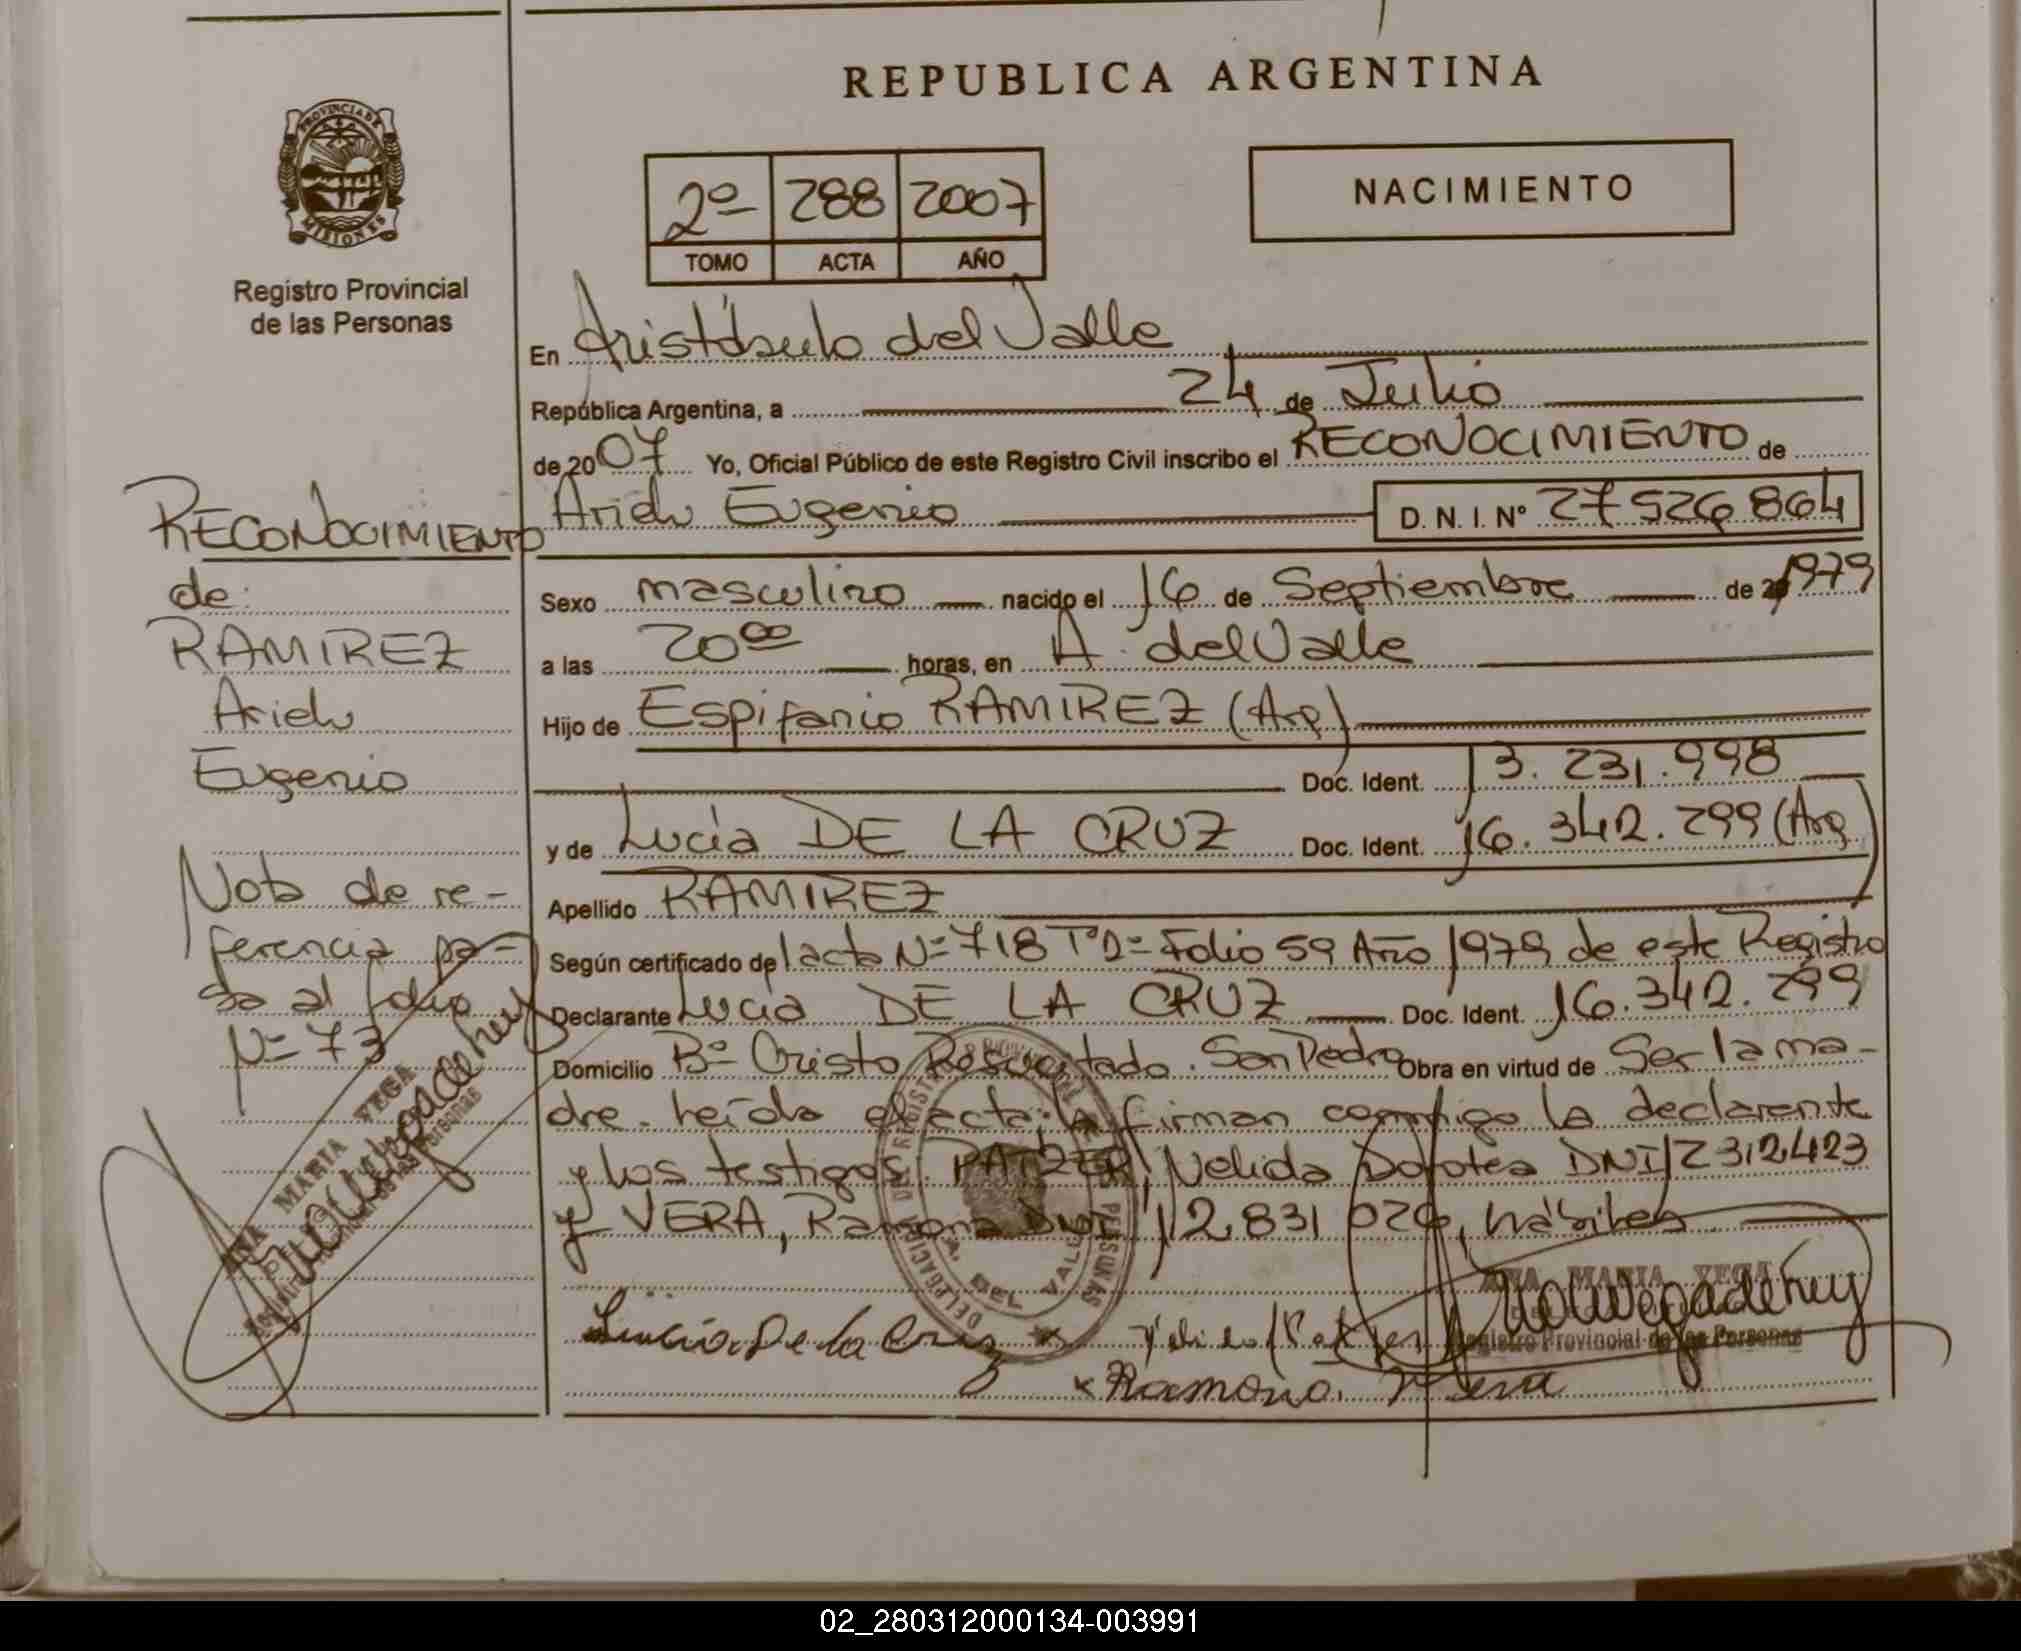 REPUBLICA ARGENTINA
PROVINCIA DE
MISIONES
Registro Provincial
de las Personas
2º 288 2007
TOMO ACTA AÑO
NACIMIENTO
En Aristóbulo del Valle
República Argentina, a 24 de Julio
de 2007 Yo, Oficial Público de este Registro Civil inscribo el RECONOCIMIENTO de
Ariel Eugenio D. N. I. Nº 27 526 864
Sexo masculino nacido el 16 de Septiembre de 1979
a las 20⁰⁰ horas, en A. del Valle
Hijo de Espifanio RAMIREZ (Arg)
Doc. Ident. 13.231.998
y de Lucia DE LA CRUZ Doc. Ident. 16.342.299 (Arg)
Apellido RAMIREZ
Según certificado de acta Nº 718 Tº 2º Folio 59 Año 1979 de este Registro
Declarante Lucia DE LA CRUZ Doc. Ident. 16.342.299
Domicilio Bº Cristo Resucitado. San Pedro Obra en virtud de Ser la ma-
dre. Leída el acta, la firman conmigo la declarente
y los testigos: PATZER, Nelida Dorotea DNI 12312423
y VERA, Ramona DNI 12,831 026, hábiles.
Lucia De la Cruz
Ramona Vera
ANA MARIA VEGA
Registro Provincial de las Personas
RECONOCIMIENTO
de:
RAMIREZ
Ariel
Eugenio
Nota de re-
ferencia pa-
sa al folio
Nº 73
ANA MARIA VEGA
02_280312000134-003991